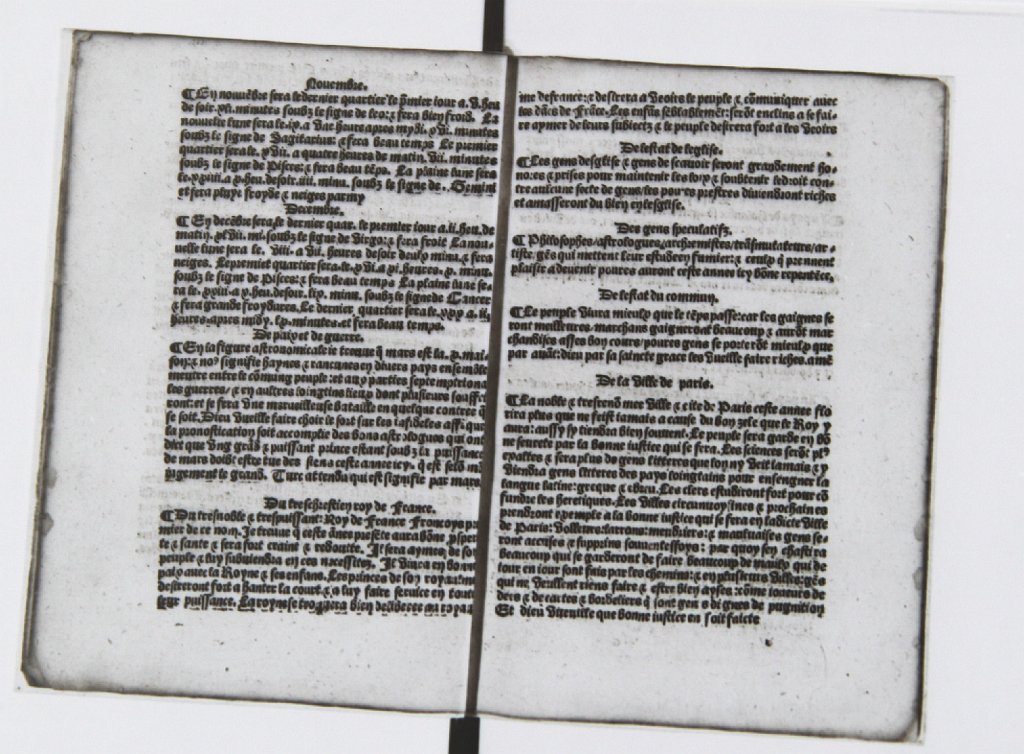 Nouembre.
¶ En nouuēbre sera le dernier quartier le p̄mier iour a .v. heu
de soir .xli. minutes soubz le signe de leo: & fera bien froid. La
nouuelle lune sera le .ix. a vne heure apres mydi .xvi. minutes
soubz le signe de Sagitarius: & fera beau temps Le premier
quartier sera le .xvii. a quatre heures de matin .vii. minutes
soubz le signe de Pisces: & fera beau tēps. La plaine lune sera
le .xxiii. a .x. heu. de soir .iiii. minu. soubz le signe de . Gemini
et fera pluye froyde & neiges parmy
Decembre.
¶ En decēbre sera le dernier quar. le premier iour a .ii. heu. de
matin .xlvii. mi. soubz le signe de virgo: & fera froit La nou
uelle lune sera le .viii. a vii. heures de soir deux minu. & fera
neiges. Le premier quartier sera le .xvi. a xi. heures .x. minu.
soubz le signe de Pisces: & fera beau temps La plaine lune se
ra le .xxiii. a .x. heu. de soir .lix. minu. soubz le signe de Cancer
& fera grande froydures. Le dernier quartier sera le .xxx. a .ii.
heures apres midy .lx. minutes. et fera beau temps.
De paix et de guerre.
¶ En la figure astronomicale ie treuue q̄ mars est la .x. mai
son: & no⁹ signifie haynes & rancunes en diuers pays ensemble
meutre entre le cōmung peuple: et aux parties septemptriona
les guerres/ & en aultres loingtins lieux dont plusieurs souffe
ront: et se fera vne merueilleuse bataille en quelque contree q̄
se soit. Dieu vueille faire choir le sort sur les infideles affi que
la pronostication soit accomplie des bons astrologues qui ont
dict que vng grād & puissant prince estant soubz la puissance
de mars doibt estre tue des siens ceste annee icy. q̄ est selō m
iugement le grand Turc attendu qui est signifie par mars
Du treschrestien roy de France.
¶ Du tresnoble & trespuissant: Roy de France Francoys pr
mier de ce nom. Je treuue q̄ ceste ānee presēte aura bōne p̄speri
te & sante & sera fort craint & redoutte. Jl sera aymes de son
peuple & luy subuiendra en ces necessitez. Jl viura en bonne
paix auec la Royne & ses enfans. Les princes de son royaulme
desireront fort a hanter la court & a luy faire seruice en toute
leur puissance. La royne se trouuera bien deliberee au royau
me de france: & desirera a veoirs le peuple & cōmuniquer auec
les dāes de Frāce. Les enfās seblablemēt: serōt enclins a se fai
re aymer de leurs subiectz & le peuple desirera fort a les veoirs
De lestat de leglise.
¶ Les gens desglise & gens de scauoir seront grandement ho
nores & prises pour maintenir les loix & soubtenir le droit con
tre aulcune secte de gens/ les poures prestres diuiendront riches
et amasseront du bien en lesglise.
Des gens speculatifz.
¶ Philosophes/ astrologues/ archemistes/ trāsmutateurs/ ar-
tiste. gēs qui mettent leur estude en fumier: & ceulx q̄ prennent
plaisir a deuenir poures auront ceste annee icy bōne repentēce.
De lestat du commun.
¶ Le peuple viura mieulx que le tēps passe: car les gaignes se
ront meilleures. marchans gaigneront beaucoup & aurōt mar
chandises asses bon cours/ poures gens se porterōt mieulx que
par auāt: dieu par sa saincte grace les vueille faire riches. amē
De la ville de paris.
¶ La noble & tresrenōmee ville & cite de Paris ceste annee flo
rira plus que ne feist iamais a cause du bon zele que le Roy y
aura: aussy sy tiendra bien souuent. Le peuple sera garde en bō
ne seurete par la bonne iustice qui se fera. Les sciences serōt pl⁹
exaltes & sera plus de gens litteres que lon ny veit iamais & y
viendra gens litteres des pays loingtains pour enseingner la
langue latine: grecque & ebreu. Les clers estudiront fort pour cō
fundre les heretiques. Les villes circunuoysines & prochaines
prendront exemple a la bonne iustice qui se fera en ladicte ville
de Paris: volleurs: larrons: meudriers: & maluaises gens se-
ront accuses & suppvins souuenteffoys: par quoy sen chastira
beaucoup qui se garderont de faire beaucoup de maulx qui de
iour en iour sont fais par les chemins: & en plusieurs villes: gēs
qui ne veullent riens faire & estre bien ayses: cōme ioueurs de
ders & de cartes & bordeliers q̄ sont gens dignes de pugnition
Et dieu vueuille que bonne iustice en soit faicte